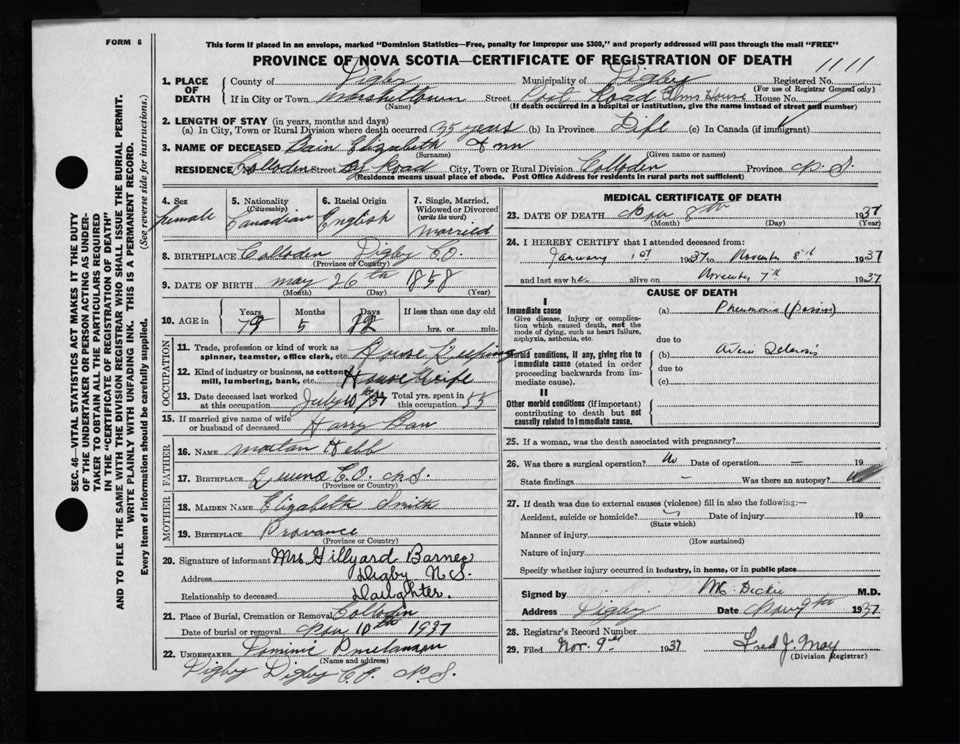 FORM 6
This form if placed in an envelope, marked "Dominion Statistics—Free, penalty for improper use $300," and properly addressed will pass through the mail "FREE"
PROVINCE OF NOVA SCOTIA—CERTIFICATE OF REGISTRATION OF DEATH
1111
1. PLACE OF DEATH County of Digby Municipality of Digby Registered No.
(For use of Registrar General only)
If in City or Town Marshalltown Street Post Road Alms House House No.
(Name) (If death occurred in a hospital or institution, give the name instead of street and number)
2. LENGTH OF STAY (in years, months and days)
(a) In City, Town or Rural Division where death occurred 35 years (b) In Province Life (c) In Canada (if immigrant)
3. NAME OF DECEASED Bain Elizabeth Ann
(Surname) (Given name or names)
RESIDENCE Colloden Street By Road City, Town or Rural Division Colloden Province N S
(Residence means usual place of abode. Post Office Address for residents in rural parts not sufficient)
4. Sex female
5. Nationality (Citizenship) Canadian
6. Racial Origin English
7. Single, Married, Widowed or Divorced (write the word) Married
8. BIRTHPLACE Colloden Digby CO.
(Province or Country)
9. DATE OF BIRTH May 26th 1858
(Month) (Day) (Year)
10. AGE in Years 79 Months 5 Days 12 If less than one day
hrs. or min.
OCCUPATION
11. Trade, profession or kind of work as spinner, teamster, office clerk, etc.
12. Kind of industry or business, as cotton mill, lumbering, bank, etc. House Wife
13. Date deceased last worked at this occupation July 10th 37 Total yrs. spent in this occupation 55
15. If married give name of wife or husband of deceased Harry Bain
FATHER
16. NAME Hebb
17. BIRTHPLACE CO. N.S.
(Province or Country)
MOTHER
18. MAIDEN NAME Elizabeth Smith
19. BIRTHPLACE Provance
(Province or Country)
20. Signature of informant Mrs Hillyard Barnes
Address Digby N.S.
Relationship to deceased Daughter.
21. Place of Burial, Cremation or Removal Colloden
Date of burial or removal Nov 10th 1937
22. UNDERTAKER
(Name and address)
Digby Digby CO. N.S.
MEDICAL CERTIFICATE OF DEATH
23. DATE OF DEATH Nov 8th 1937
(Month) (Day) (Year)
24. I HEREBY CERTIFY that I attended deceased from:
January 1st 1937 to November 8th 1937
and last saw her alive on November 7th 1937
CAUSE OF DEATH
I
Immediate cause
Give disease, injury or complication which caused death, not the mode of dying, such as heart failure, asphyxia, asthenia, etc.
(a) Pneumonia
due to
Morbid conditions, if any, giving rise to immediate cause (stated in order proceeding backwards from immediate cause).
(b) Arterio Sclerosis
due to
(c)
II
Other morbid conditions (if important) contributing to death but not causally related to immediate cause.
25. If a woman, was the death associated with pregnancy?
26. Was there a surgical operation? No Date of operation — 19
State findings - Was there an autopsy? No
27. If death was due to external causes (violence) fill in also the following:—
Accident, suicide or homicide? Date of injury 19
(State which)
Manner of injury
(How sustained)
Nature of injury
Specify whether injury occurred in industry, in home, or in public place
Signed by Dickie M.D.
Address Digby Date Nov 9th 1937
28. Registrar's Record Number
29. Filed Nov. 9th 1937 Fred J. May
(Division Registrar)
SEC. 46—VITAL STATISTICS ACT MAKES IT THE DUTY
OF THE UNDERTAKER OR PERSON ACTING AS UNDER-
TAKER TO OBTAIN ALL THE PARTICULARS REQUIRED
IN THE "CERTIFICATE OF REGISTRATION OF DEATH"
AND TO FILE THE SAME WITH THE DIVISION REGISTRAR WHO SHALL ISSUE THE BURIAL PERMIT.
WRITE PLAINLY WITH UNFADING INK. THIS IS A PERMANENT RECORD.
Every item of information should be carefully supplied. (See reverse side for instructions.)